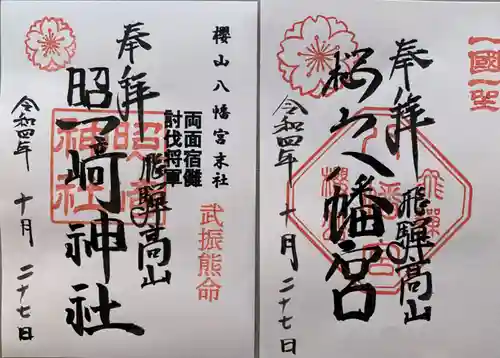 奉拝
飛騨高山
桜山八幡宮
令和四年
十月
二十七日
櫻山八幡宮末社
両面宿儺
討伐将軍
武振熊命
奉拝
飛騨高山
照崎神社
令和四年
十月
二十七日